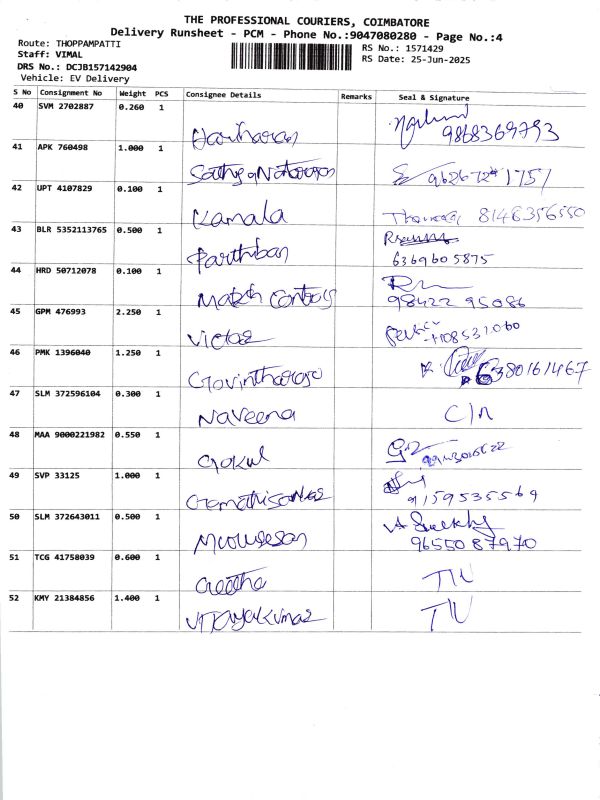 THE PROFESSIONAL COURIERS, COIMBATORE
Delivery Runsheet - PCM - Phone No.:9047080280 - Page No.:4
Route: THOPPAMPATTI
RS No.: 1571429
Staff: VIMAL
RS Date: 25-Jun-2025
DRS No.: DCJB157142904
Vehicle: EV Delivery
S No Consignment No Weight PCS Consignee Details Remarks Seal & Signature
40 SVM 2702887 0.260 1
Hariharan 9868369793
41 APK 760498 1.000 1
42 UPT 4107829 0.100 1
Kamala 8146356550
43 BLR 5352113765 0.500 1
Parthiban 6369605875
44 HRD 50712078 0.100 1
Match Controls 98422 95086
45 GPM 476993 2.250 1
Victor
46 PMK 1396040 1.250 1
Govintharaj 6380161467
47 SLM 372596104 0.300 1
Naveena C/n
48 MAA 9000221982 0.550 1
Gokul
49 SVP 33125 1.000 1
9159535569
50 SLM 372643011 0.500 1
9655087970
51 TCG 41758039 0.600 1
Geetha
52 KMY 21384856 1.400 1
Vijayakumar